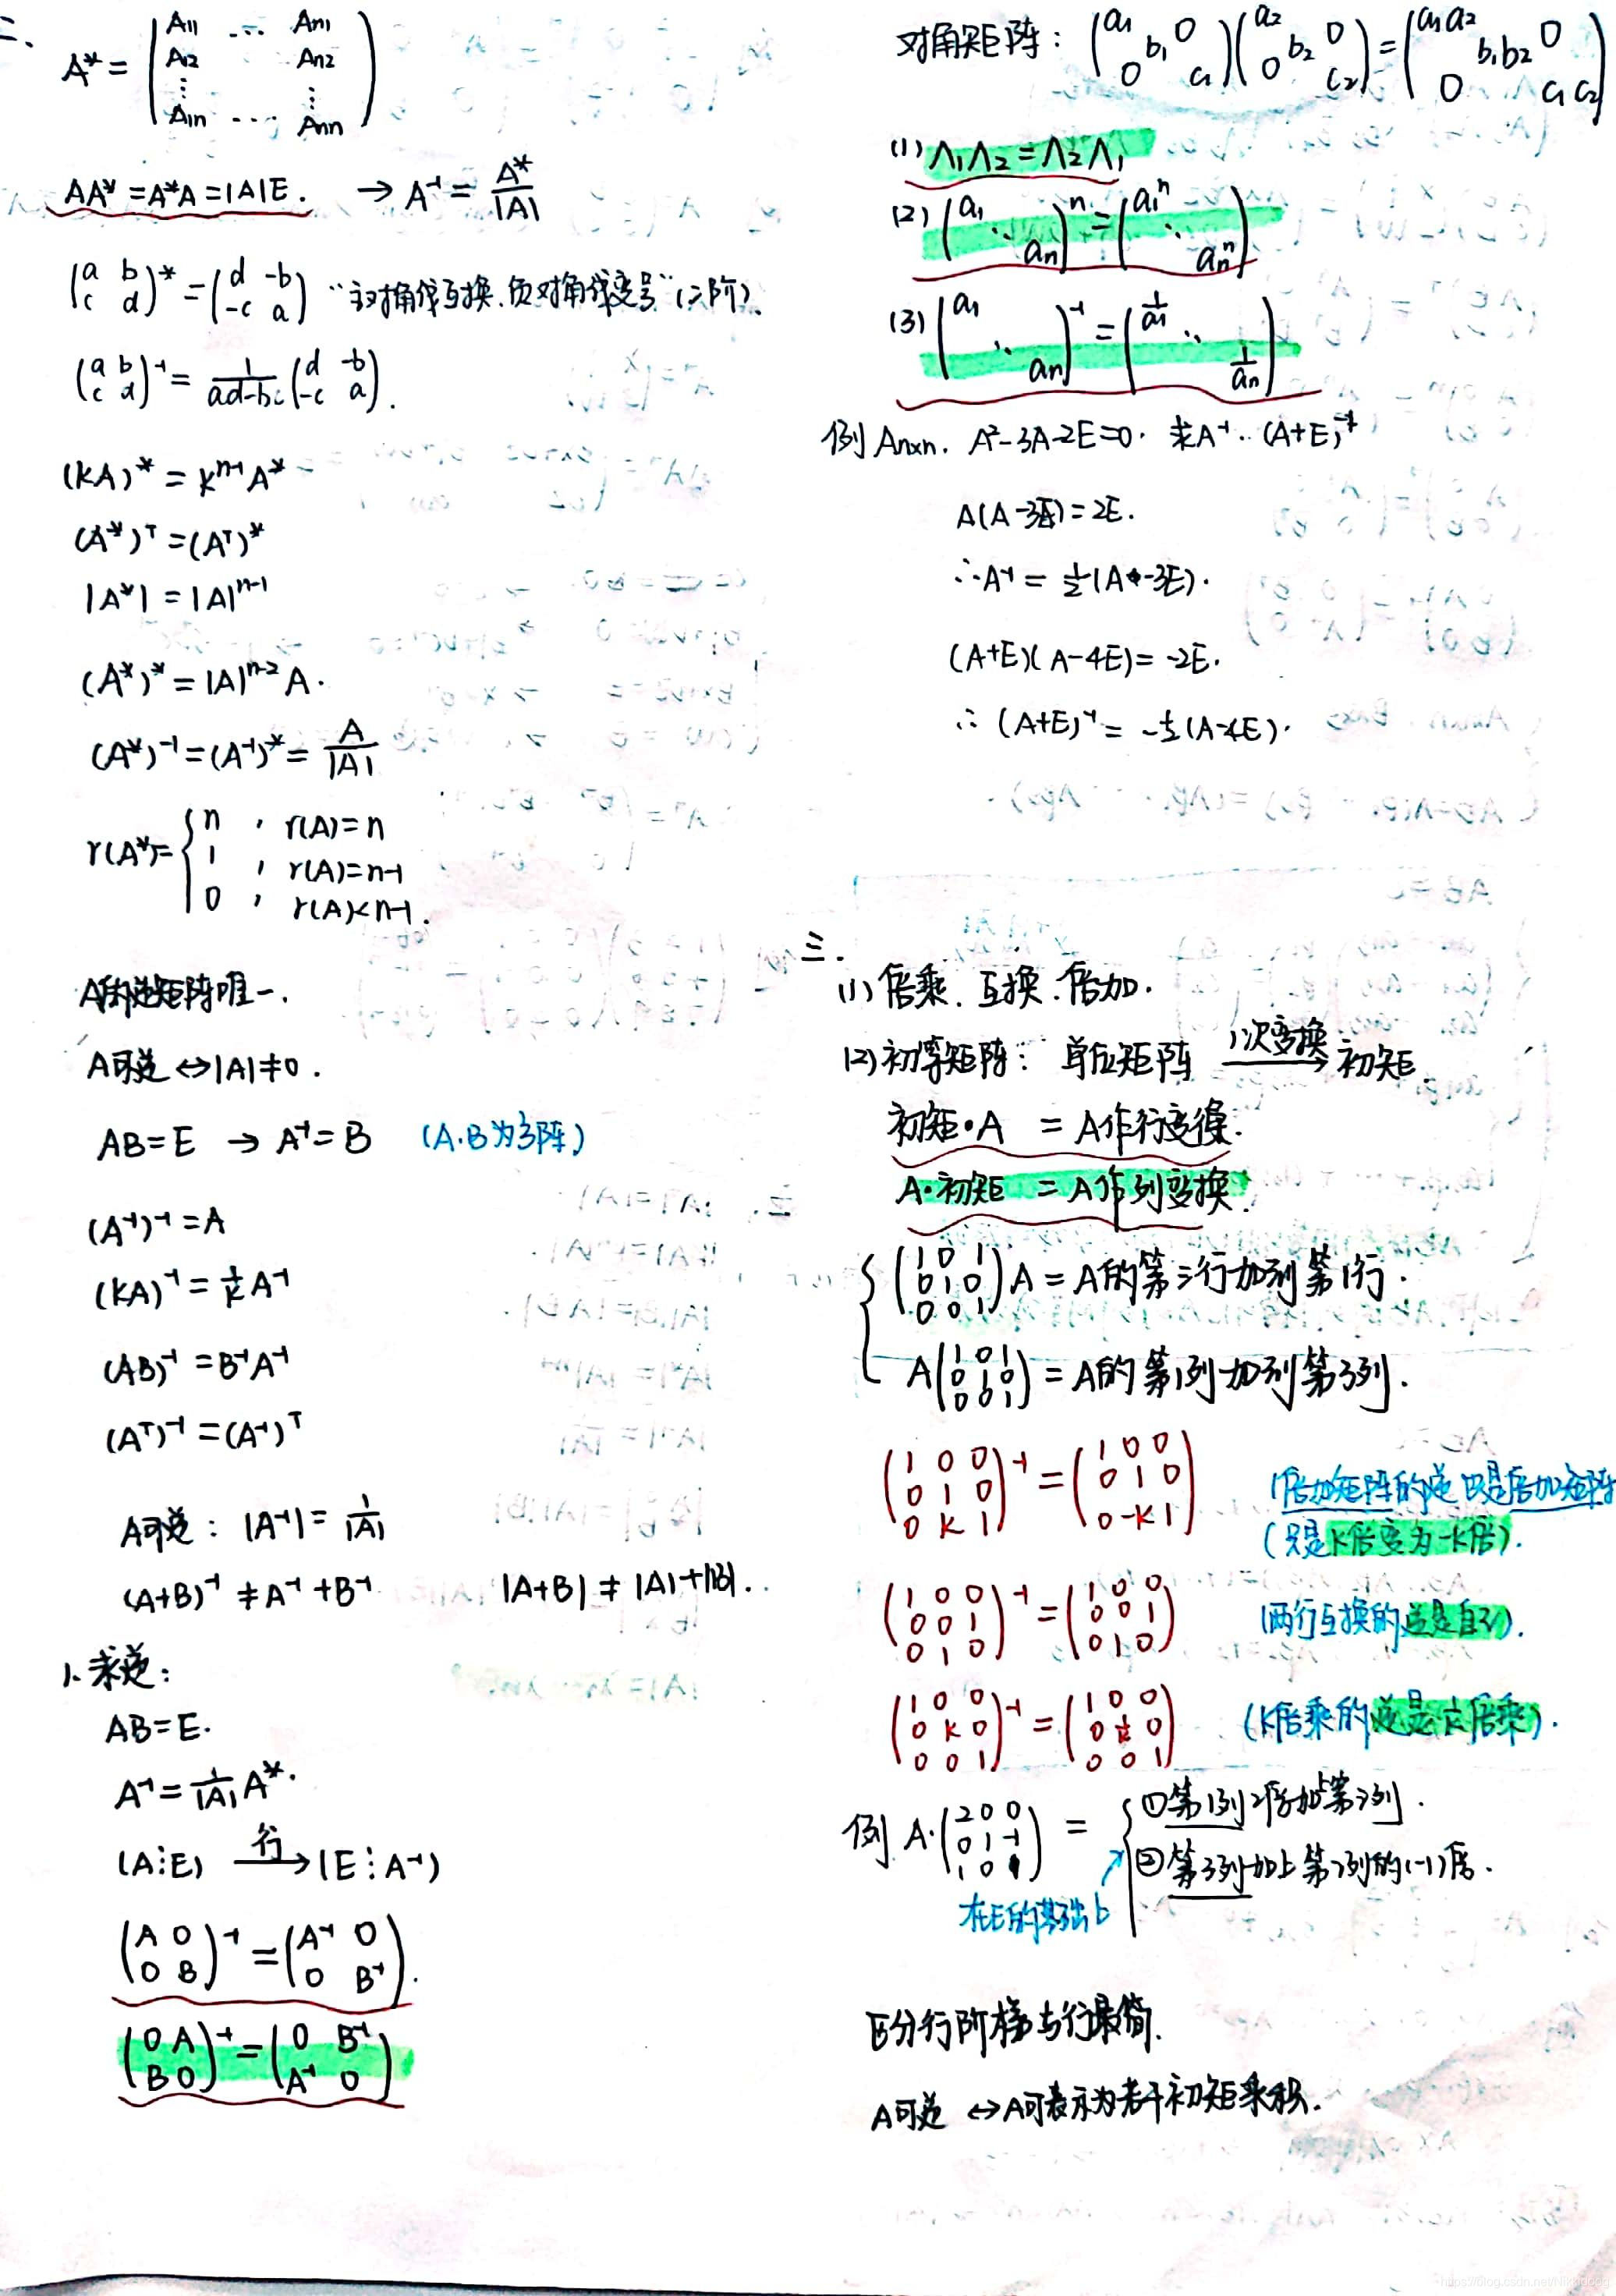 二、
A* = (A11 … An1
A12 An2
⋮ ⋮
A1n … Ann)
AA* = A*A = |A|E. → A⁻¹ = A*/|A|
(a b
c d)* = (d -b
-c a) “主对角线互换,负对角线变号”(二阶).
(a b
c d)⁻¹ = 1/(ad-bc) (d -b
-c a).
(kA)* = kⁿ⁻¹A*
(A*)ᵀ = (Aᵀ)*
|A*| = |A|ⁿ⁻¹
(A*)* = |A|ⁿ⁻² A.
(A*)⁻¹ = (A⁻¹)* = A/|A|
r(A*) = { n , r(A)=n
1 , r(A)=n-1
0 , r(A)<n-1.
A的逆矩阵唯一.
A可逆 ⇔ |A|≠0.
AB=E → A⁻¹=B (A.B为方阵)
(A⁻¹)⁻¹ = A
(kA)⁻¹ = 1/k A⁻¹
(AB)⁻¹ = B⁻¹A⁻¹
(Aᵀ)⁻¹ = (A⁻¹)ᵀ
A可逆: |A⁻¹| = 1/|A|
(A+B)⁻¹ ≠ A⁻¹+B⁻¹ |A+B| ≠ |A|+|B|.
1. 求逆:
AB=E.
A⁻¹ = 1/|A| A*.
(A⋮E) 行→ (E⋮A⁻¹)
(A 0
0 B)⁻¹ = (A⁻¹ 0
0 B⁻¹).
(0 A
B 0)⁻¹ = (0 B⁻¹
A⁻¹ 0)
对角矩阵: (a1 b1 0 0 c1)(a2 b2 0 0 c2) = (a1a2 b1b2 0 0 c1c2)
(1) Λ1Λ2 = Λ2Λ1
(2) (a1 ⋱ an)ⁿ = (a1ⁿ ⋱ anⁿ)
(3) (a1 ⋱ an)⁻¹ = (1/a1 ⋱ 1/an)
例 An×n. A²-3A-2E=0. 求A⁻¹. (A+E)⁻¹
A(A-3E)=2E.
∴A⁻¹ = ½(A-3E).
(A+E)(A-4E) = -2E.
∴ (A+E)⁻¹ = -½(A-4E).
三.
(1) 倍乘. 互换. 倍加.
(2) 初等矩阵: 单位矩阵 1次变换→ 初矩.
初矩·A = A作行变换.
A·初矩 = A作列变换.
(1 0 1
0 1 0
0 0 1)A = A的第三行加到第1行.
A(1 0 1
0 1 0
0 0 1) = A的第1列加到第3列.
(1 0 0
0 1 0
0 k 1)⁻¹ = (1 0 0
0 1 0
0 -k 1)
(倍加矩阵的逆也是倍加矩阵
(只是k倍变为-k倍).
(1 0 0
0 0 1
0 1 0)⁻¹ = (1 0 0
0 0 1
0 1 0) (两行互换的逆是自己).
(1 0 0
0 k 0
0 0 1)⁻¹ = (1 0 0
0 1/k 0
0 0 1) (k倍乘的逆是1/k倍乘).
例 A·(2 0 0
0 1 -1
1 0 1) = { ①第1列2倍加上第3列.
②第3列加上第2列的(-1)倍.
在E的基础上
区分行阶梯与行最简.
A可逆 ⇔ A可表示为若干初矩乘积.